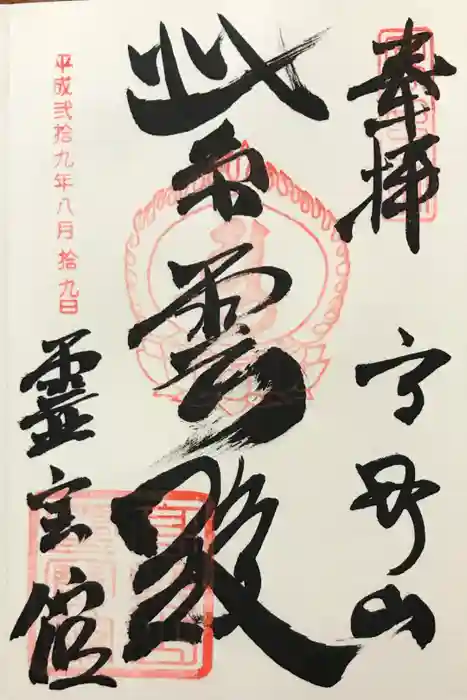 奉拝
高野山
紫雲殿
平成弐拾九年八月拾九日
霊宝館